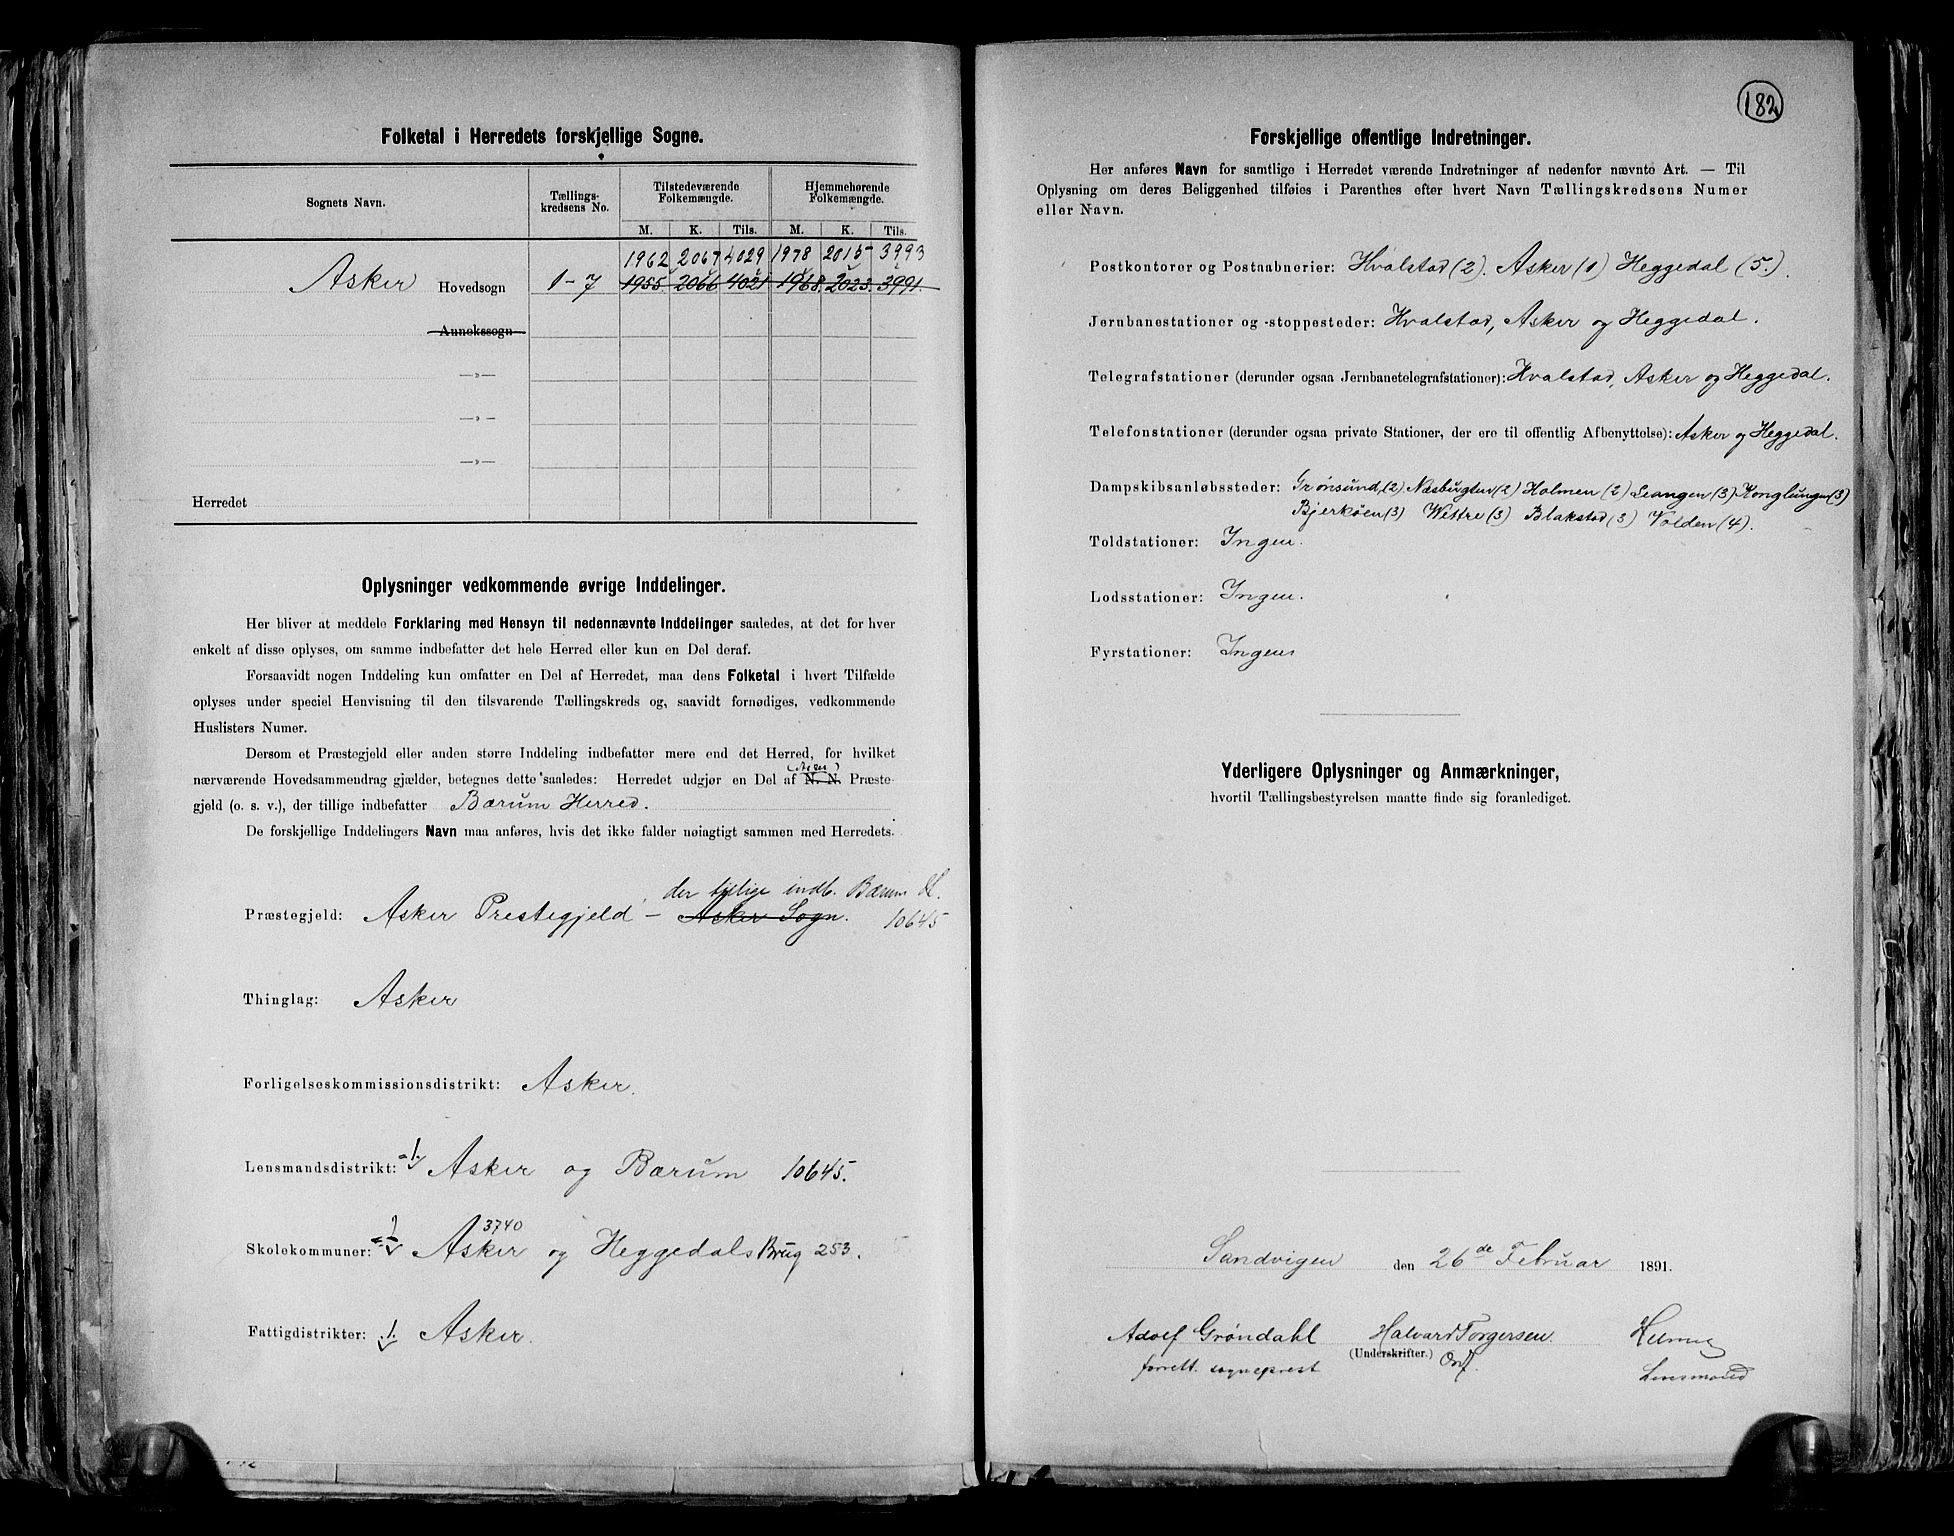 Folketal i Herredets forskjellige Sogne.
Sognets Navn. Tællings-kredsens No. Tilstedeværende Folkemængde. Hjemmehørende Folkemængde.
M. K. Tils. M. K. Tils.
1962 2067 4029 1978 2015 3993
Asker Hovedsogn 1-7 1955. 2066 4021 1968. 2023. 3991.
Annekssogn
—„—
—„—
—„—
Herredet
Oplysninger vedkommende øvrige Inddelinger.
Her bliver at meddele Forklaring med Hensyn til nedennævnte Inddelinger saaledes, at det for hver
enkelt af disse oplyses, om samme indbefatter det hele Herred eller kun en Del deraf.
Forsaavidt nogen Inddeling kun omfatter en Del af Herredet, maa dens Folketal i hvert Tilfælde
oplyses under speciel Henvisning til den tilsvarende Tællingskreds og, saavidt fornødiges, vedkommende
Huslisters Numer.
Dersom et Præstegjeld eller anden større Inddeling indbefatter mere end det Herred, for hvilket
nærværende Hovedsammendrag gjælder, betegnes dette saaledes: Herredet udgjør en Del af N. N. Præste-
gjeld (o. s. v.), der tillige indbefatter Bærum Herred.
De forskjellige Inddelingers Navn maa anføres, hvis det ikke falder nøiagtigt sammen med Herredets.
der tillige indb. Bærum H.
Præstegjeld: Asker Prestegjeld – Asker Sogn. 10645
Thinglag: Asker
Forligelseskommissionsdistrikt: Asker.
Lensmandsdistrikt: 1. Asker og Bærum 10645.
3740
Skolekommuner: Asker og Heggedals Brug 253.
Fattigdistrikter: 1. Asker.
182
Forskjellige offentlige Indretninger.
Her anføres Navn for samtlige i Herredet værende Indretninger af nedenfor nævnte Art. — Til
Oplysning om deres Beliggenhed tilføies i Parenthes efter hvert Navn Tællingskredsens Numer
eller Navn.
Postkontorer og Postaabnerier: Hvalstad (2). Asker (1) Heggedal (5.).
Jernbanestationer og -stoppesteder: Hvalstad, Asker og Heggedal.
Telegrafstationer (derunder ogsaa Jernbanetelegrafstationer): Hvalstad, Asker og Heggedal.
Telefonstationer (derunder ogsaa private Stationer, der ere til offentlig Afbenyttelse): Asker og Heggedal.
Dampskibsanløbssteder: Grønsund, (2) Næsbugten (2) Holmen (2) Leangen (3) Konglungen (3)
Bjerkøen (3) Wettre (3) Blakstad (3) Volden (4).
Toldstationer: Ingen.
Lodsstationer: Ingen.
Fyrstationer: Ingen
Yderligere Oplysninger og Anmærkninger,
hvortil Tællingsbestyrelsen maatte finde sig foranlediget.
Sandvigen den 26de Februar 1891.
Adolf Grøndahl Halvard Torgersen
(Underskrifter.) Orf.
sogneprest Lensmand